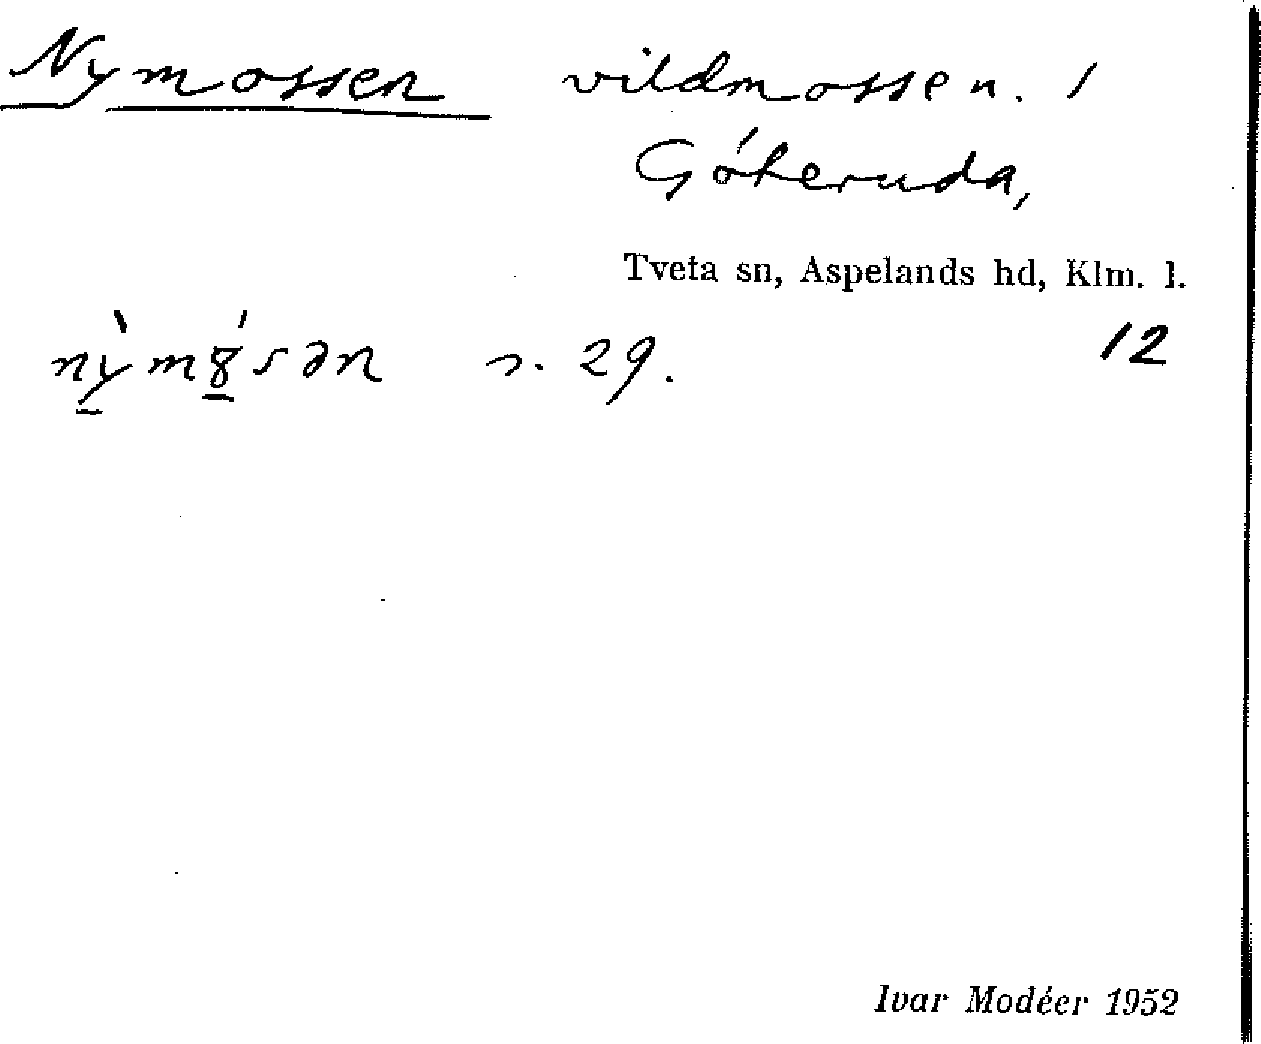 Nymossen vildmossen. 1
Göteruda,
Tveta sn, Aspelands hd, Klm. l.
12
s. 29.
Ivar Modéer 1952